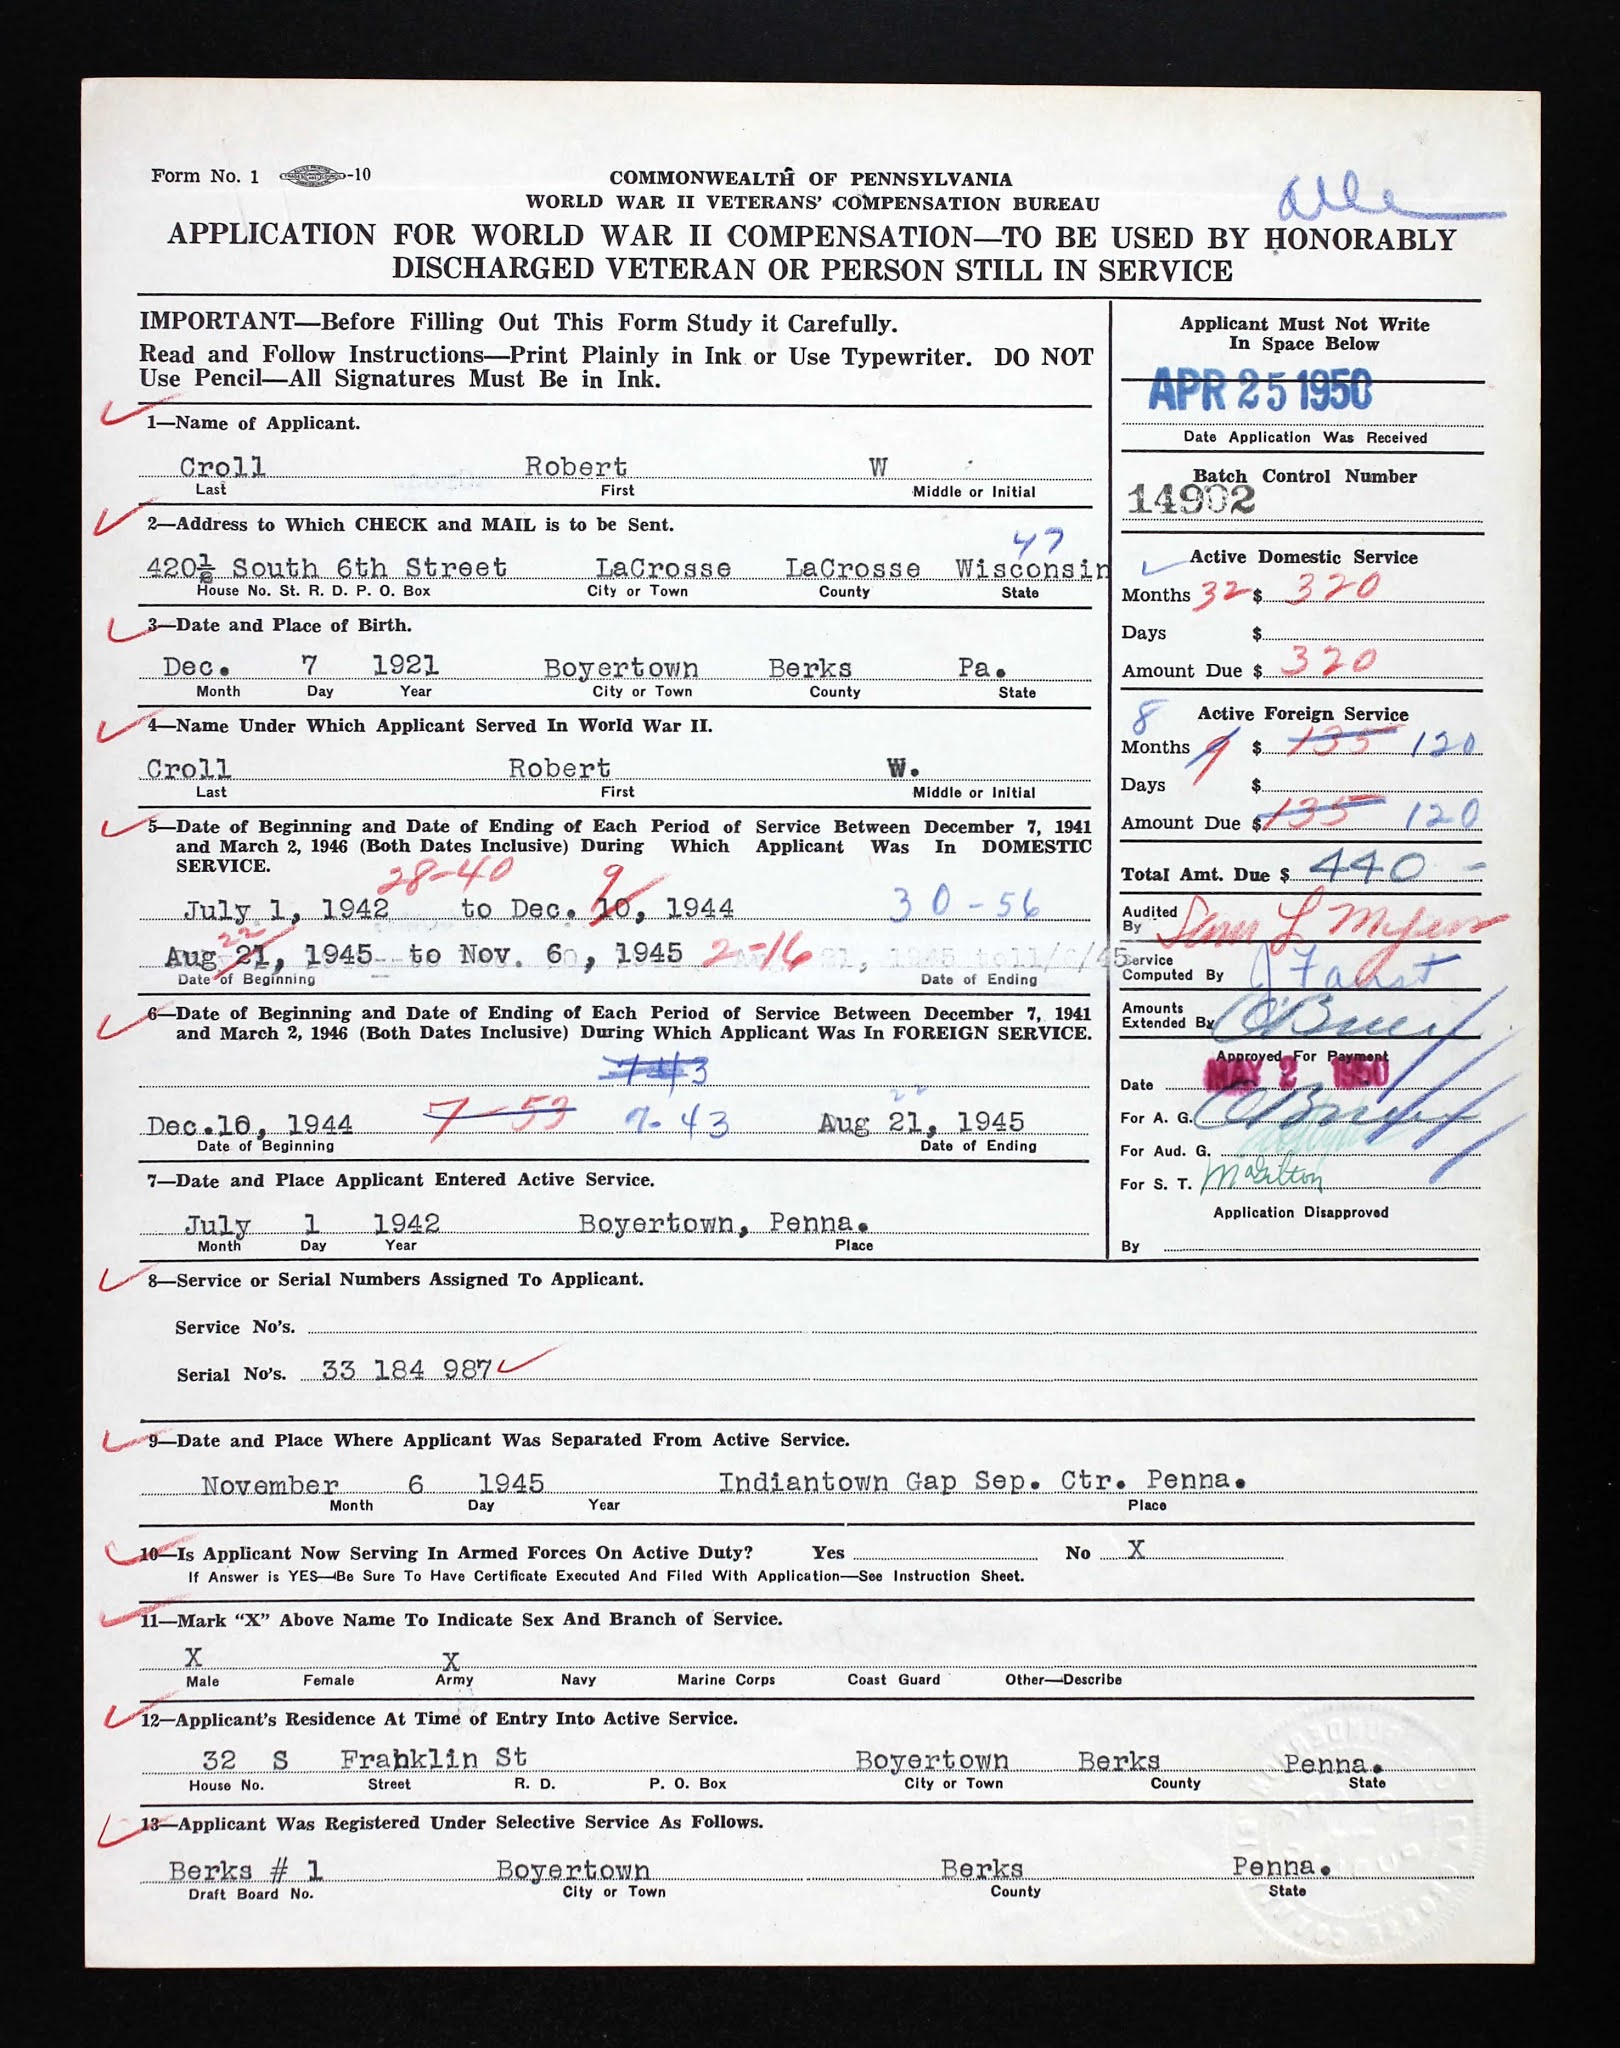 Form No. 1 -10
COMMONWEALTH OF PENNSYLVANIA
WORLD WAR II VETERANS' COMPENSATION BUREAU
APPLICATION FOR WORLD WAR II COMPENSATION—TO BE USED BY HONORABLY
DISCHARGED VETERAN OR PERSON STILL IN SERVICE
IMPORTANT—Before Filling Out This Form Study it Carefully.
Read and Follow Instructions—Print Plainly in Ink or Use Typewriter. DO NOT
Use Pencil—All Signatures Must Be in Ink.
1—Name of Applicant.
Croll Robert W
Last First Middle or Initial
2—Address to Which CHECK and MAIL is to be Sent.
47
420½ South 6th Street LaCrosse LaCrosse Wisconsin
House No. St. R. D. P. O. Box City or Town County State
3—Date and Place of Birth.
Dec. 7 1921 Boyertown Berks Pa.
Month Day Year City or Town County State
4—Name Under Which Applicant Served In World War II.
Croll Robert W.
Last First Middle or Initial
5—Date of Beginning and Date of Ending of Each Period of Service Between December 7, 1941
and March 2, 1946 (Both Dates Inclusive) During Which Applicant Was In DOMESTIC
SERVICE.
28-40 9
July 1, 1942 to Dec. 10, 1944 30-56
22
Aug 21, 1945 to Nov. 6, 1945 2-16
Date of Beginning Date of Ending
6—Date of Beginning and Date of Ending of Each Period of Service Between December 7, 1941
and March 2, 1946 (Both Dates Inclusive) During Which Applicant Was In FOREIGN SERVICE.
743
22
Dec.10, 1944 7-53 7-43 Aug 21, 1945
Date of Beginning Date of Ending
7—Date and Place Applicant Entered Active Service.
July 1 1942 Boyertown, Penna.
Month Day Year Place
Applicant Must Not Write
In Space Below
APR 25 1950
Date Application Was Received
Batch Control Number
14902
Active Domestic Service
Months 32 $ 320
Days $
Amount Due $ 320
Active Foreign Service
8
Months 9 $ 135 120
Days $
Amount Due $ 135 120
Total Amt. Due $ 440 -
Audited
By
Service
Computed By J Faust
Amounts
Extended By O'Brien
Approved For Payment
Date MAY 2 1950
For A. G. O'Brien
For Aud. G.
For S. T.
Application Disapproved
By
8—Service or Serial Numbers Assigned To Applicant.
Service No's.
Serial No's. 33 184 987
9—Date and Place Where Applicant Was Separated From Active Service.
November 6 1945 Indiantown Gap Sep. Ctr. Penna.
Month Day Year Place
10—Is Applicant Now Serving In Armed Forces On Active Duty? Yes No X
If Answer is YES—Be Sure To Have Certificate Executed And Filed With Application—See Instruction Sheet.
11—Mark "X" Above Name To Indicate Sex And Branch of Service.
X X
Male Female Army Navy Marine Corps Coast Guard Other—Describe
12—Applicant's Residence At Time of Entry Into Active Service.
32 S Franklin St Boyertown Berks Penna.
House No. Street R. D. P. O. Box City or Town County State
13—Applicant Was Registered Under Selective Service As Follows.
Berks # 1 Boyertown Berks Penna.
Draft Board No. City or Town County State